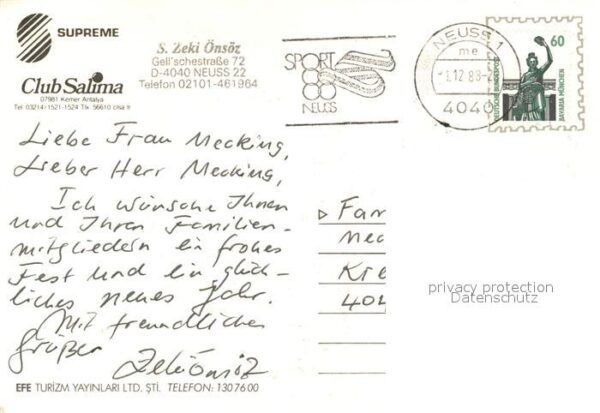 SUPREME
Club Salima
07981 Kemer Antalya
Tel 03214/1521-1524 Tlx 56610 clsa tr
S. Zeki Önsöz
Gell'schestraße 72
D-4040 NEUSS 22
Telefon 02101-461964
SPORT
88
NEUSS
NEUSS 1
me
12.88
4040
60
DEUTSCHE BUNDESPOST
BAVARIA MÜNCHEN
Liebe Frau Mecking,
Lieber Herr Mecking,
Ich wünsche Ihnen
und Ihren Familien-
mitgliedern ein frohes
Fest und ein glück-
liches neues Jahr.
Mit freundlichen
Grüßen
Zeki Önsöz
Fam
Mec
Kre
404
privacy protection
Datenschutz
EFE TURİZM YAYINLARI LTD. ŞTİ. TELEFON: 130 76 00